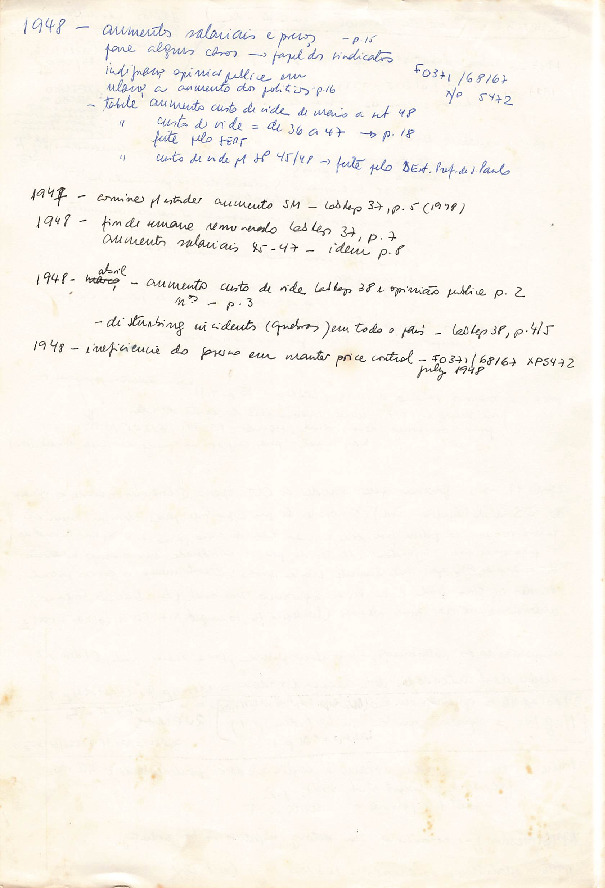 1948 – aumentos salariais e preços – p.15
para alguns casos → papel dos sindicatos
indiferença opinião pública em
relação a aumento dos políticos p.16
FO371/68167
X/P 5472
– tabela aumento custo de vida de maio a set 48
" custo de vida = de 36 a 47 → p. 18
fonte pelo
" custo de vida p/ SP 45/48 → fonte pelo Dept. Pref. de S Paulo
1947 – p/ estudar aumento SM – LabRep 37, p. 5 (1948)
1948 – fim de semana remunerado LabRep 37, p. 7
aumentos salariais 45-47 – idem p. 8
abril
1948 – março – aumento custo de vida LabRep 38 e opinião pública p. 2
nos – p. 3
– disturbing incidents (quebras) em todo o país – LabRep 38, p. 4/5
1948 – ineficiencia do governo em manter price control – FO371/68167 XP5472
july 1948